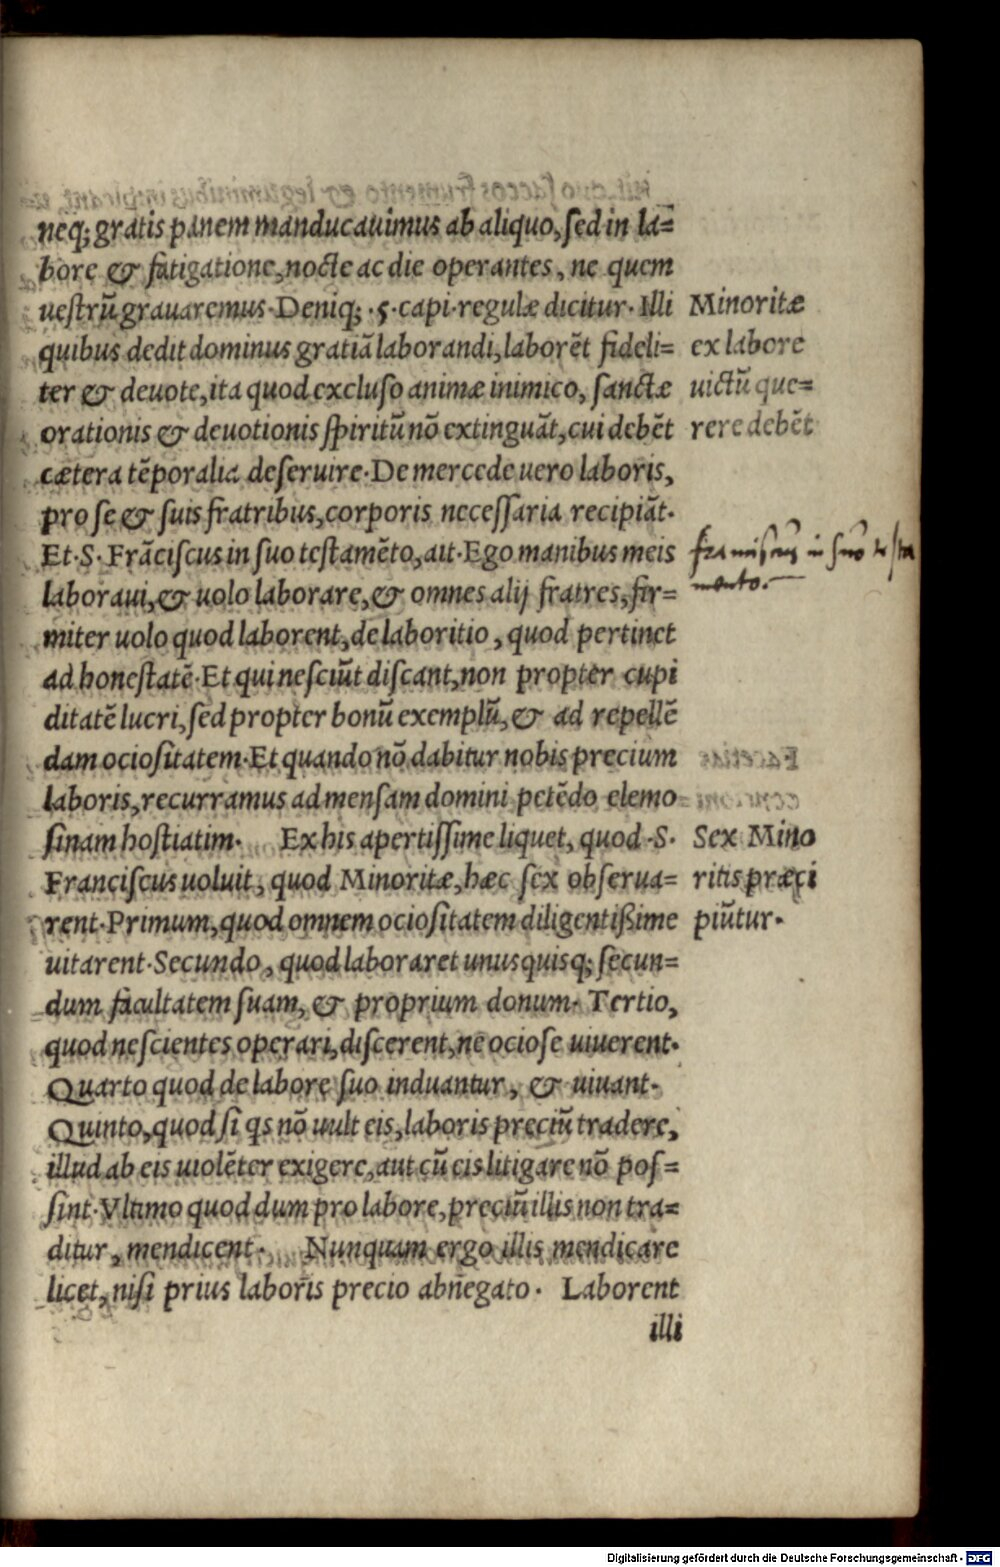 neq; gratis panem manducauimus ab aliquo, sed in la=
bore & fatigatione, nocte ac die operantes, ne quem
uestrũ grauaremus. Deniq; .5. capi. regulæ dicitur. Illi
quibus dedit dominus gratiã laborandi, laborẽt fideli=
ter & deuote, ita quod excluso animæ inimico, sanctæ
orationis & deuotionis spiritũ nõ extinguãt, cui debẽt
cætera tẽporalia deseruire. De mercede uero laboris,
pro se & suis fratribus, corporis necessaria recipiãt.
Et .S. Frãciscus in suo testamẽto, ait. Ego manibus meis
laboraui, & uolo laborare, & omnes alij fratres, fir=
miter uolo quod laborent, de laboritio, quod pertinet
ad honestatẽ. Et qui nesciũt discant, non propter cupi
ditatẽ lucri, sed propter bonũ exemplũ, & ad repellẽ
dam ociositatem. Et quando nõ dabitur nobis precium
laboris, recurramus ad mensam domini petẽdo elemo=
sinam hostiatim. Ex his apertissime liquet, quod .S.
Franciscus uoluit, quod Minoritæ, hæc sex obserua=
rent. Primum, quod omnem ociositatem diligentißime
uitarent. Secundo, quod laboraret unusquisq; secun=
dum facultatem suam, & proprium donum. Tertio,
quod nescientes operari, discerent, ne ociose uiuerent.
Quarto quod de labore suo induantur, & uiuant.
Quinto, quod si qs nõ uult eis, laboris preciũ tradere,
illud ab eis uiolẽter exigere, aut cũ eis litigare nõ pos=
sint. Vltimo quod dum pro labore, preciũ illis non tra=
ditur, mendicent. Nunquam ergo illis mendicare
licet, nisi prius laboris precio abnegato. Laborent
illi
Minoritæ
ex labore
uictũ que=
rere debẽt
franciscus in suo testa
mento.
Sex Mino
ritis præci
piũtur.
Digitalisierung gefördert durch die Deutsche Forschungsgemeinschaft - DFG